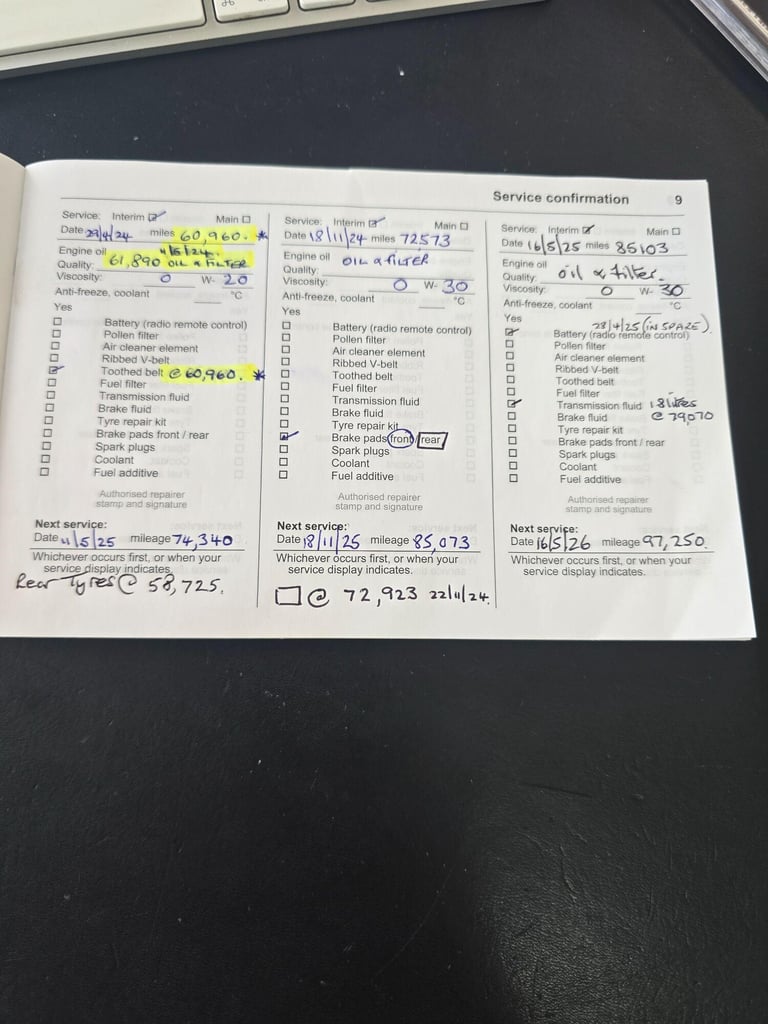 Service confirmation 9
Service: Interim Main
Date 29/4/24 miles 60,960. *
Engine oil 4/5/24.
Quality: 61,890 OIL & FILTER
Viscosity: 0 W- 20
Anti-freeze, coolant °C
Yes
Battery (radio remote control)
Pollen filter
Air cleaner element
Ribbed V-belt
Toothed belt @ 60,960. *
Fuel filter
Transmission fluid
Brake fluid
Tyre repair kit
Brake pads front / rear
Spark plugs
Coolant
Fuel additive
Authorised repairer
stamp and signature
Next service:
Date 4/5/25 mileage 74,340
Whichever occurs first, or when your
service display indicates.
Rear Tyres @ 58,725.
Service: Interim Main
Date 18/11/24 miles 72573
Engine oil OIL & FILTER
Quality:
Viscosity: 0 W- 30
Anti-freeze, coolant °C
Yes
Battery (radio remote control)
Pollen filter
Air cleaner element
Ribbed V-belt
Toothed belt
Fuel filter
Transmission fluid
Brake fluid
Tyre repair kit
Brake pads front / rear
Spark plugs
Coolant
Fuel additive
Authorised repairer
stamp and signature
Next service:
Date 18/11/25 mileage 85,073
Whichever occurs first, or when your
service display indicates.
@ 72,923 22/11/24.
Service: Interim Main
Date 16/5/25 miles 85103
Engine oil
Quality: oil & filter.
Viscosity: 0 W- 30
Anti-freeze, coolant °C
Yes 28/4/25 (IN SPAZE)
Battery (radio remote control)
Pollen filter
Air cleaner element
Ribbed V-belt
Toothed belt
Fuel filter
Transmission fluid 18 litres
Brake fluid @ 79,070
Tyre repair kit
Brake pads front / rear
Spark plugs
Coolant
Fuel additive
Authorised repairer
stamp and signature
Next service:
Date 16/5/26 mileage 97,250.
Whichever occurs first, or when your
service display indicates.